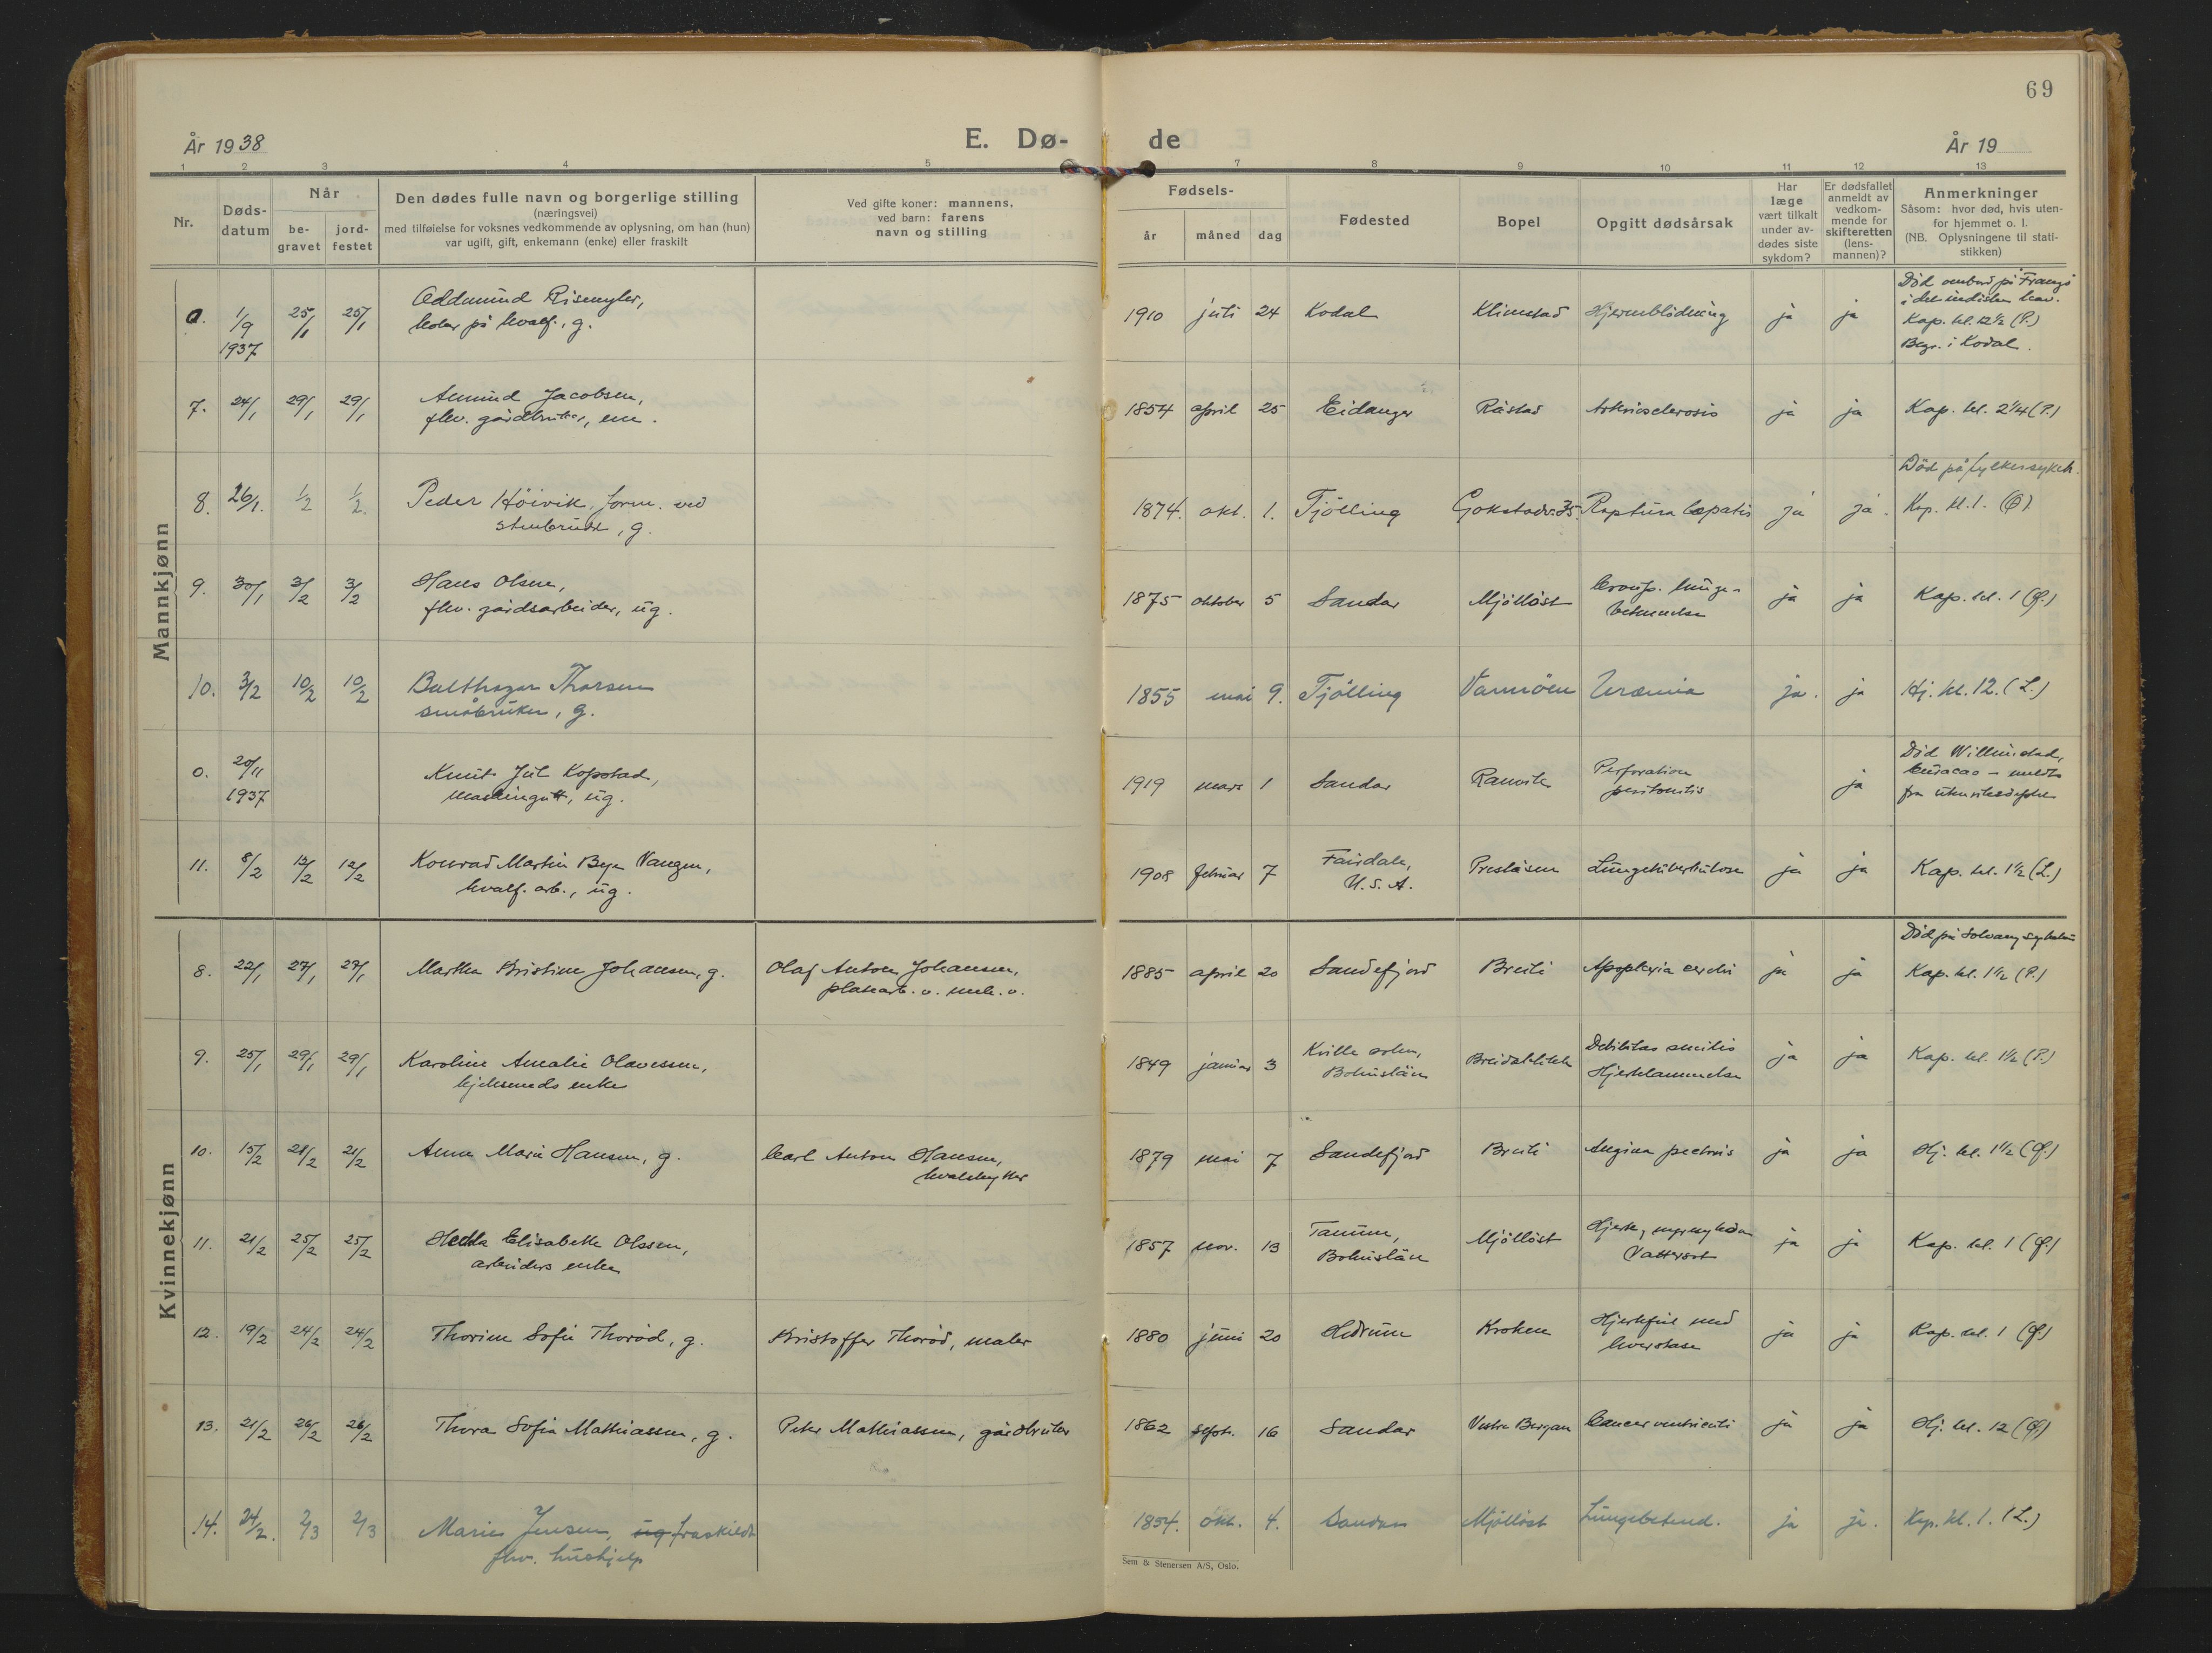 69
År 1938
E. Dø-
de
År 19
1 2 3 4 5 7 8 9 10 11 12 13
Nr.
Døds-
datum
Når
be-
gravet
jord-
festet
Den dødes fulle navn og borgerlige stilling
(næringsvei)
med tilføielse for voksnes vedkommende av oplysning, om han (hun)
var ugift, gift, enkemann (enke) eller fraskilt
Ved gifte koner: mannens,
ved barn: farens
navn og stilling
Fødsels-
år måned dag
Fødested
Bopel
Opgitt dødsårsak
Har
læge
vært tilkalt
under av-
dødes siste
sykdom?
Er dødsfallet
anmeldt av
vedkom-
mende for
skifteretten
(lens-
mannen)?
Anmerkninger
Såsom: hvor død, hvis uten-
for hjemmet o. l.
(NB. Oplysningene til stati-
stikken)
Mannkjønn
0. 1/9 1937 25/1 25/1 Oddmund
på hvalf., g.
1910 juli 24 Kodal Klinestad Hjerneblødning ja ja
Død ombord på
Kap. kl. 12½ (P.)
Begr. i Kodal.
7. 24/1 29/1 29/1 Amund Jacobsen,
fhv. gårdbruker, em.
1854 april 25 Eidanger Råstad Arteriosclerosis ja ja Kap. kl. 2¼ (P.)
8. 26/1. 1/2 1/2. Peder Höivik, form. ved
stenbrudd, g.
1874. okt. 1. Tjölling Gokstadv. 35. Ruptura hepatis ja ja.
Död på fylkessykeh.
Kap. kl. 1.
9. 30/1 3/2 3/2 Hans Olsen,
fhv. gårdsarbeider, ug.
1875 oktober 5 Sandar Mjölløst Croup. lunge-
betendelse
ja ja Kap. kl. 1 (Q.)
10. 3/2 10/2 10/2 Balthazar Thorsen
småbruker, g.
1855 mai 9. Tjölling Uræmia ja. ja Hj. kl. 12. (L.)
0. 20/11 1937 Knut Jul Kopstad,
maskingutt, ug.
1919 mars 1 Sandar Ranvik Perforation
peritonitis
ja
Død Willemstad,
Curacao - meldt
fra
11. 8/2 12/2 12/2 Konrad Martin Bye Vangen,
hvalf. arb., ug.
1908 februar 7 Fairdale,
U.S.A.
Preståsen Lungetuberkulose ja ja Kap. kl. 1½ (L.)
Kvinnekjønn
8. 22/1 27/1 27/1 Martha Kristine Johansen, g.
Olaf Anton Johansen,
platearb. v. mek. v.
1885 april 20 Sandefjord Breili Apoplexia cerebri ja ja
Død på Solvang sykehus
Kap. kl. 1½ (P.)
9. 25/1 29/1 29/1 Karoline Amalie Olavesen,
kjelesmeds enke
1849 januar 3 Kville sokn,
Bohuslän
Debilitas senilis
Hjertelammelse
ja ja Kap. kl. 1½ (P.)
10. 15/2 21/2 21/2 Anna Marie Hansen, g.
Carl Anton Hansen,
hvalskytter
1879 mai 7 Sandefjord Breili Angina pectoris ja ja Hj. kl. 1½ (Q.)
11. 21/2 25/2 25/2 Hedda Elisabeth Olssen,
arbeiders enke
1857 nov. 13 Tanum,
Bohuslän
Mjölløst Hjerte,
Vattersot
ja ja Kap. kl. 1 (Q.)
12. 19/2 24/2 24/2 Thorine Sofie Thorød, g.
Kristoffer Thorød, maler
1880 juni 20 Hedrum Kroken Hjertefeil med
ja ja Kap. kl. 1 (Q.)
13. 21/2 26/2 26/2 Thora Sofie Mathiassen, g.
Peter Mathiassen, gårdbruker
1862 sept. 16 Sandar Vestre Bergan Cancer ventriculi ja ja Hj. kl. 12 (Q.)
14. 24/2. 2/3 2/3 Marie Jensen, ug fraskildt
fhv. hushjelp
1854. okt. 4. Sandar Mjölløst Lungebetend. ja ja. Kap. kl. 1. (L.)
Sem & Stenersen A/S, Oslo.